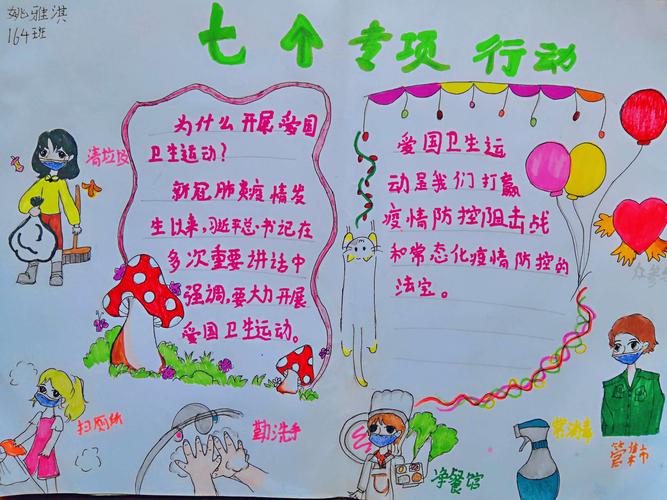 姚雅淇
164班
七个专项行动
清垃圾
为什么开展爱国
卫生运动？
新冠肺炎疫情发
生以来，习近平总书记在
多次重要讲话中
强调，要大力开展
爱国卫生运动。
爱国卫生运
动是我们打赢
疫情防控阻击战
和常态化疫情防控的
法宝。
众参
扫厕所
勤洗手
净餐馆
常消毒
管集市